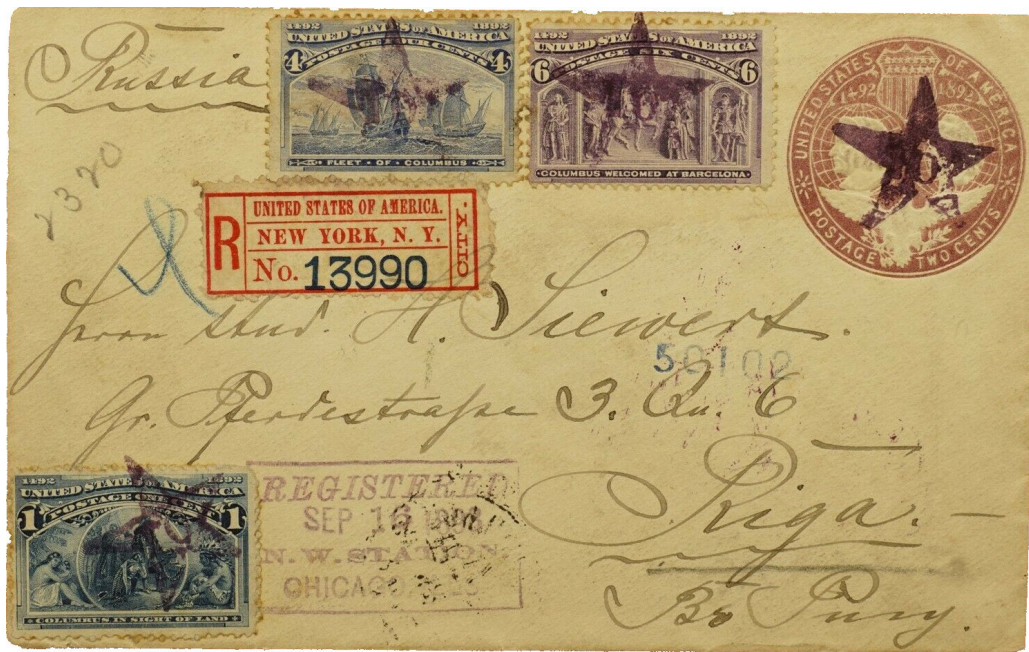 Russia
2320
1492 1892
UNITED STATES OF AMERICA
POSTAGE FOUR CENTS
4 4
FLEET OF COLUMBUS
1492 1892
UNITED STATES OF AMERICA
POSTAGE SIX CENTS
6 6
COLUMBUS WELCOMED AT BARCELONA
UNITED STATES OF AMERICA
1492 1892
POSTAGE TWO CENTS
R
UNITED STATES OF AMERICA.
NEW YORK, N. Y.
No. 13990
CITY.
Herrn stud. H. Siewert.
50102
Gr. Pferdestraße 3. Qu. 6
Riga.
1492 1892
UNITED STATES OF AMERICA
POSTAGE ONE CENT
1 1
COLUMBUS IN SIGHT OF LAND
REGISTERED
SEP 16
N. W. STATION.
CHICAGO